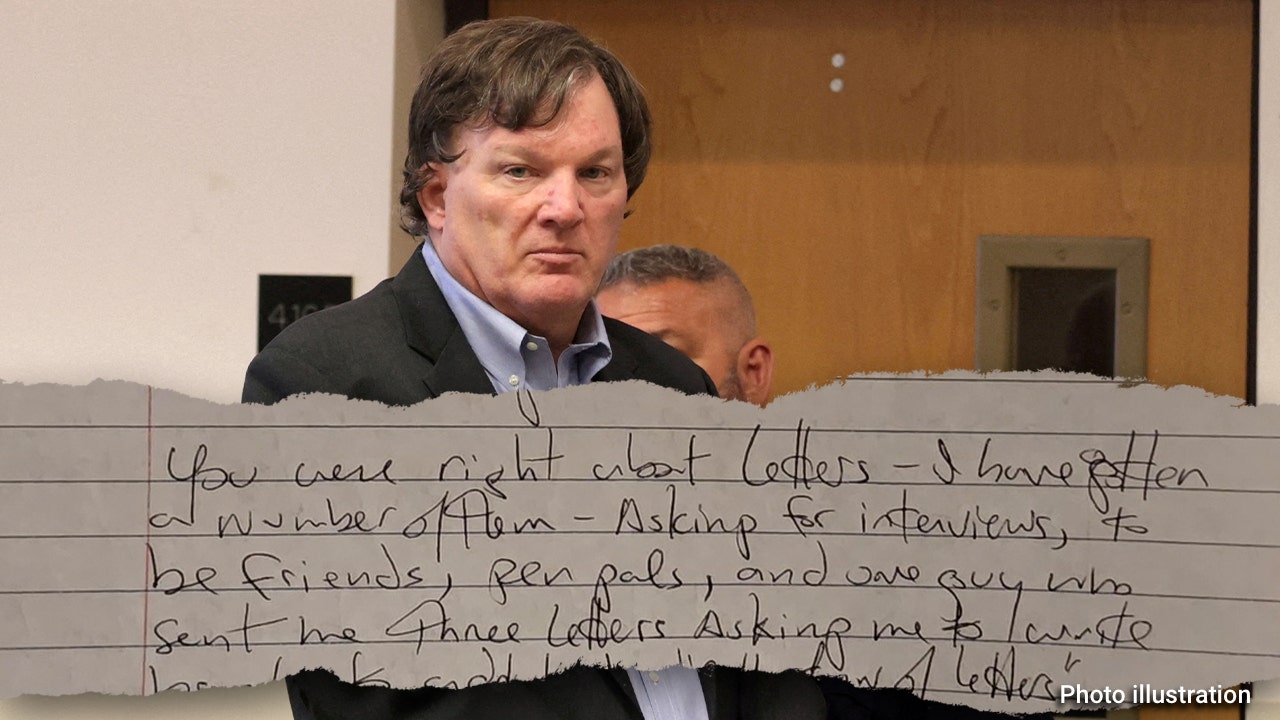 You were right about letters – I have gotten
a number of them – Asking for interviews, to
be friends, pen pals, and one guy who
sent me three letters Asking me to write
of letters"
Photo illustration